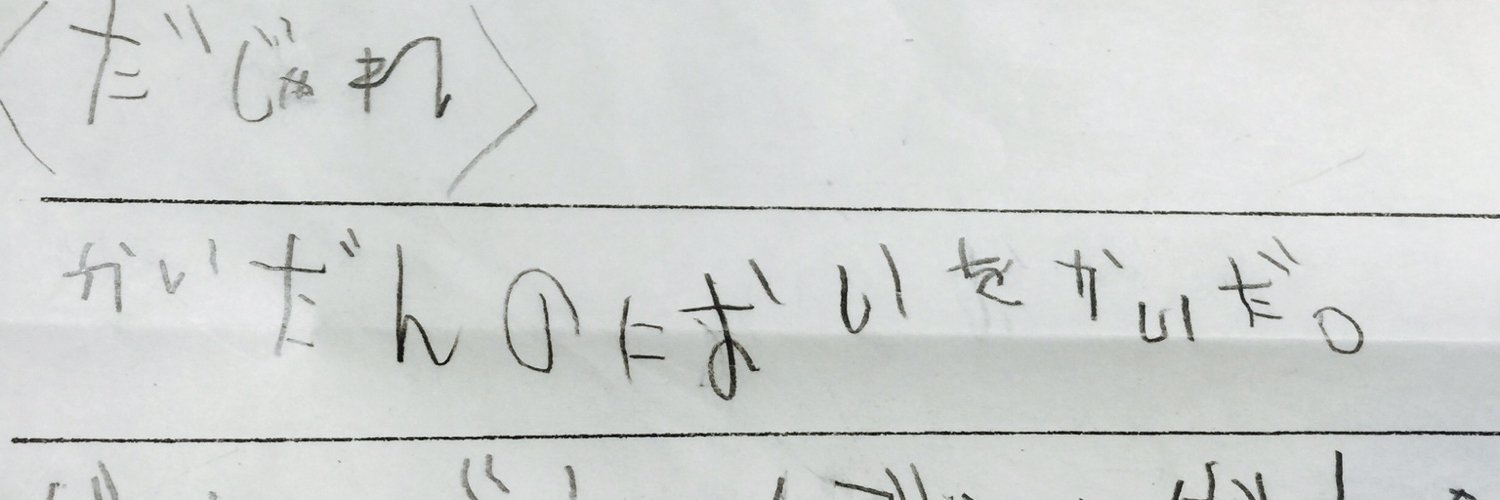 〈だじゃれ〉
かいだんのにおいをかいだ。